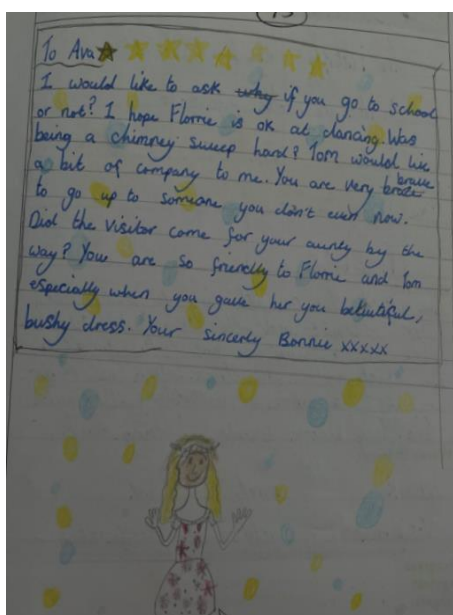 To Ava
I would like to ask why if you go to school
or not? I hope Florrie is ok at dancing. Was
being a chimney sweep hard? Tom would like
a bit of company to me. You are very brave
to go up to someone you don't even now.
Did the visitor come for your aunty by the
way? You are so friendly to Florrie and Tom
especially when you gave her you beautiful,
bushy dress. Your sincerly Bonnie xxxxx